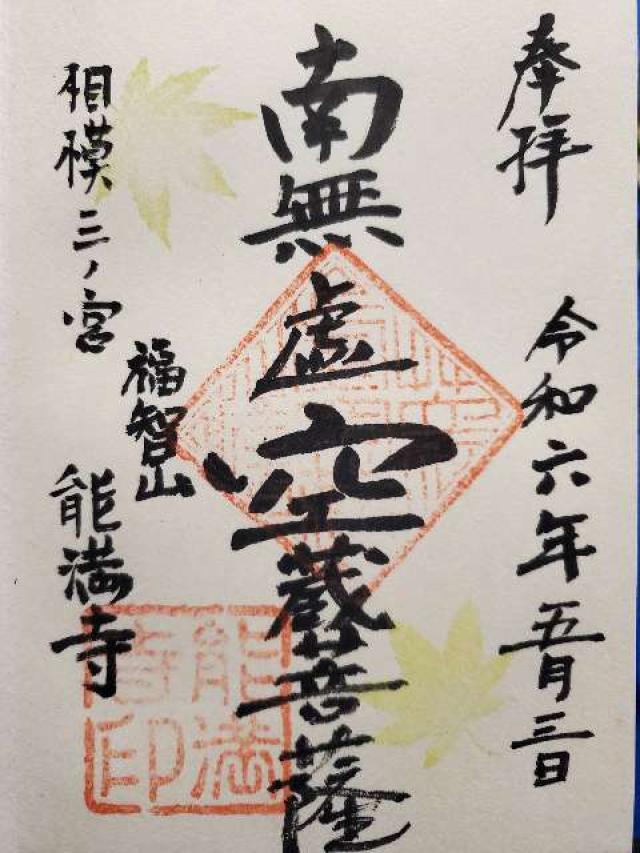 奉拝
令和六年五月三日
南無虚空蔵菩薩
相模三ノ宮
福智山
能満寺
能満
寺印